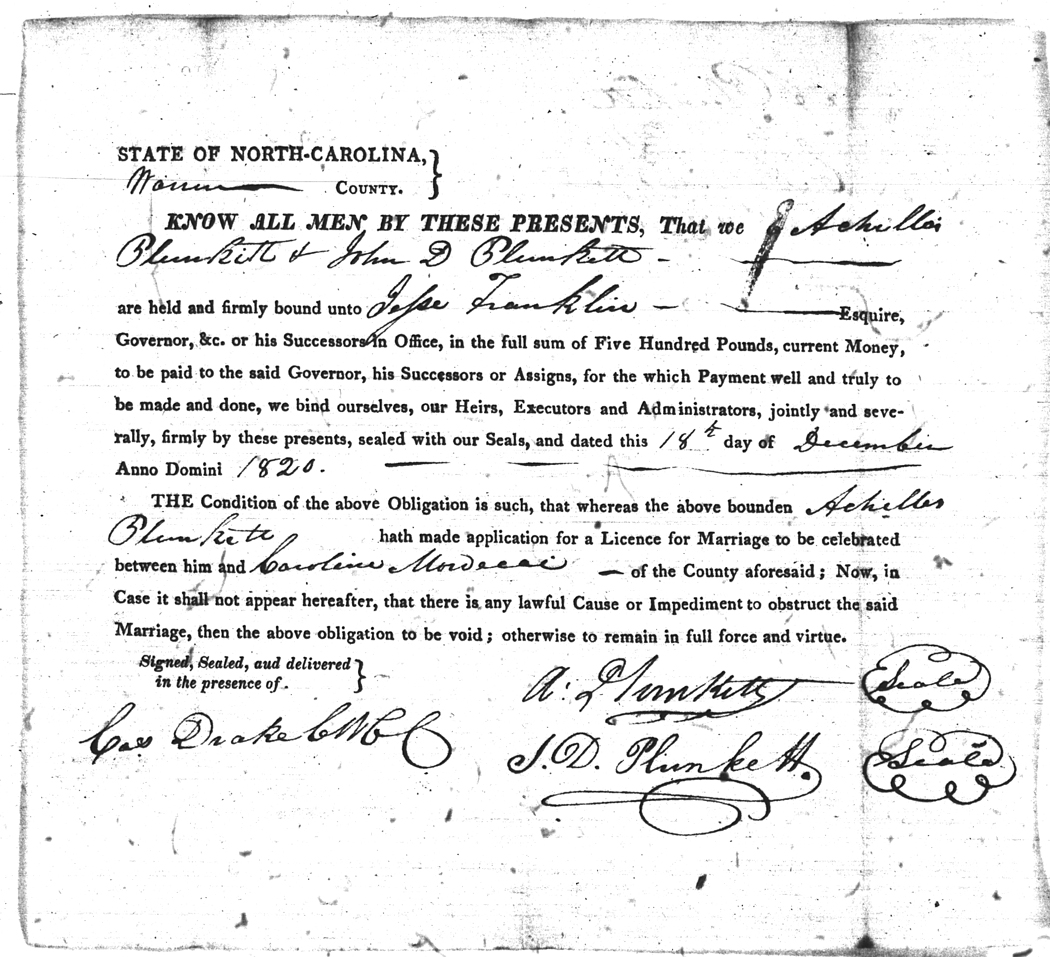 STATE OF NORTH-CAROLINA, }
Warren COUNTY.
KNOW ALL MEN BY THESE PRESENTS, That we Achilles
Plunkett & John D Plunkett -
are held and firmly bound unto Jesse Franklin - Esquire,
Governor, &c. or his Successors in Office, in the full sum of Five Hundred Pounds, current Money,
to be paid to the said Governor, his Successors or Assigns, for the which Payment well and truly to
be made and done, we bind ourselves, our Heirs, Executors and Administrators, jointly and seve-
rally, firmly by these presents, sealed with our Seals, and dated this 18th day of December
Anno Domini 1820.
THE Condition of the above Obligation is such, that whereas the above bounden Achilles
Plunkett hath made application for a Licence for Marriage to be celebrated
between him and Caroline Mordecai - of the County aforesaid; Now, in
Case it shall not appear hereafter, that there is any lawful Cause or Impediment to obstruct the said
Marriage, then the above obligation to be void; otherwise to remain in full force and virtue.
Signed, Sealed, aud delivered }
in the presence of.
A: Plunkett Seale
Cas Drake CWCC
J. D. Plunkett. Seale